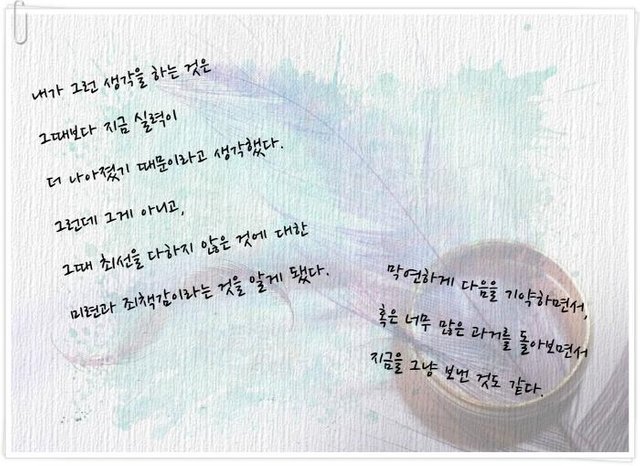 내가 그런 생각을 하는 것은
그때보다 지금 실력이
더 나아졌기 때문이라고 생각했다.
그런데 그게 아니고,
그때 최선을 다하지 않은 것에 대한
미련과 죄책감이라는 것을 알게 됐다.
막연하게 다음을 기약하면서,
혹은 너무 많은 과거를 돌아보면서
지금을 그냥 보낸 것도 같다.